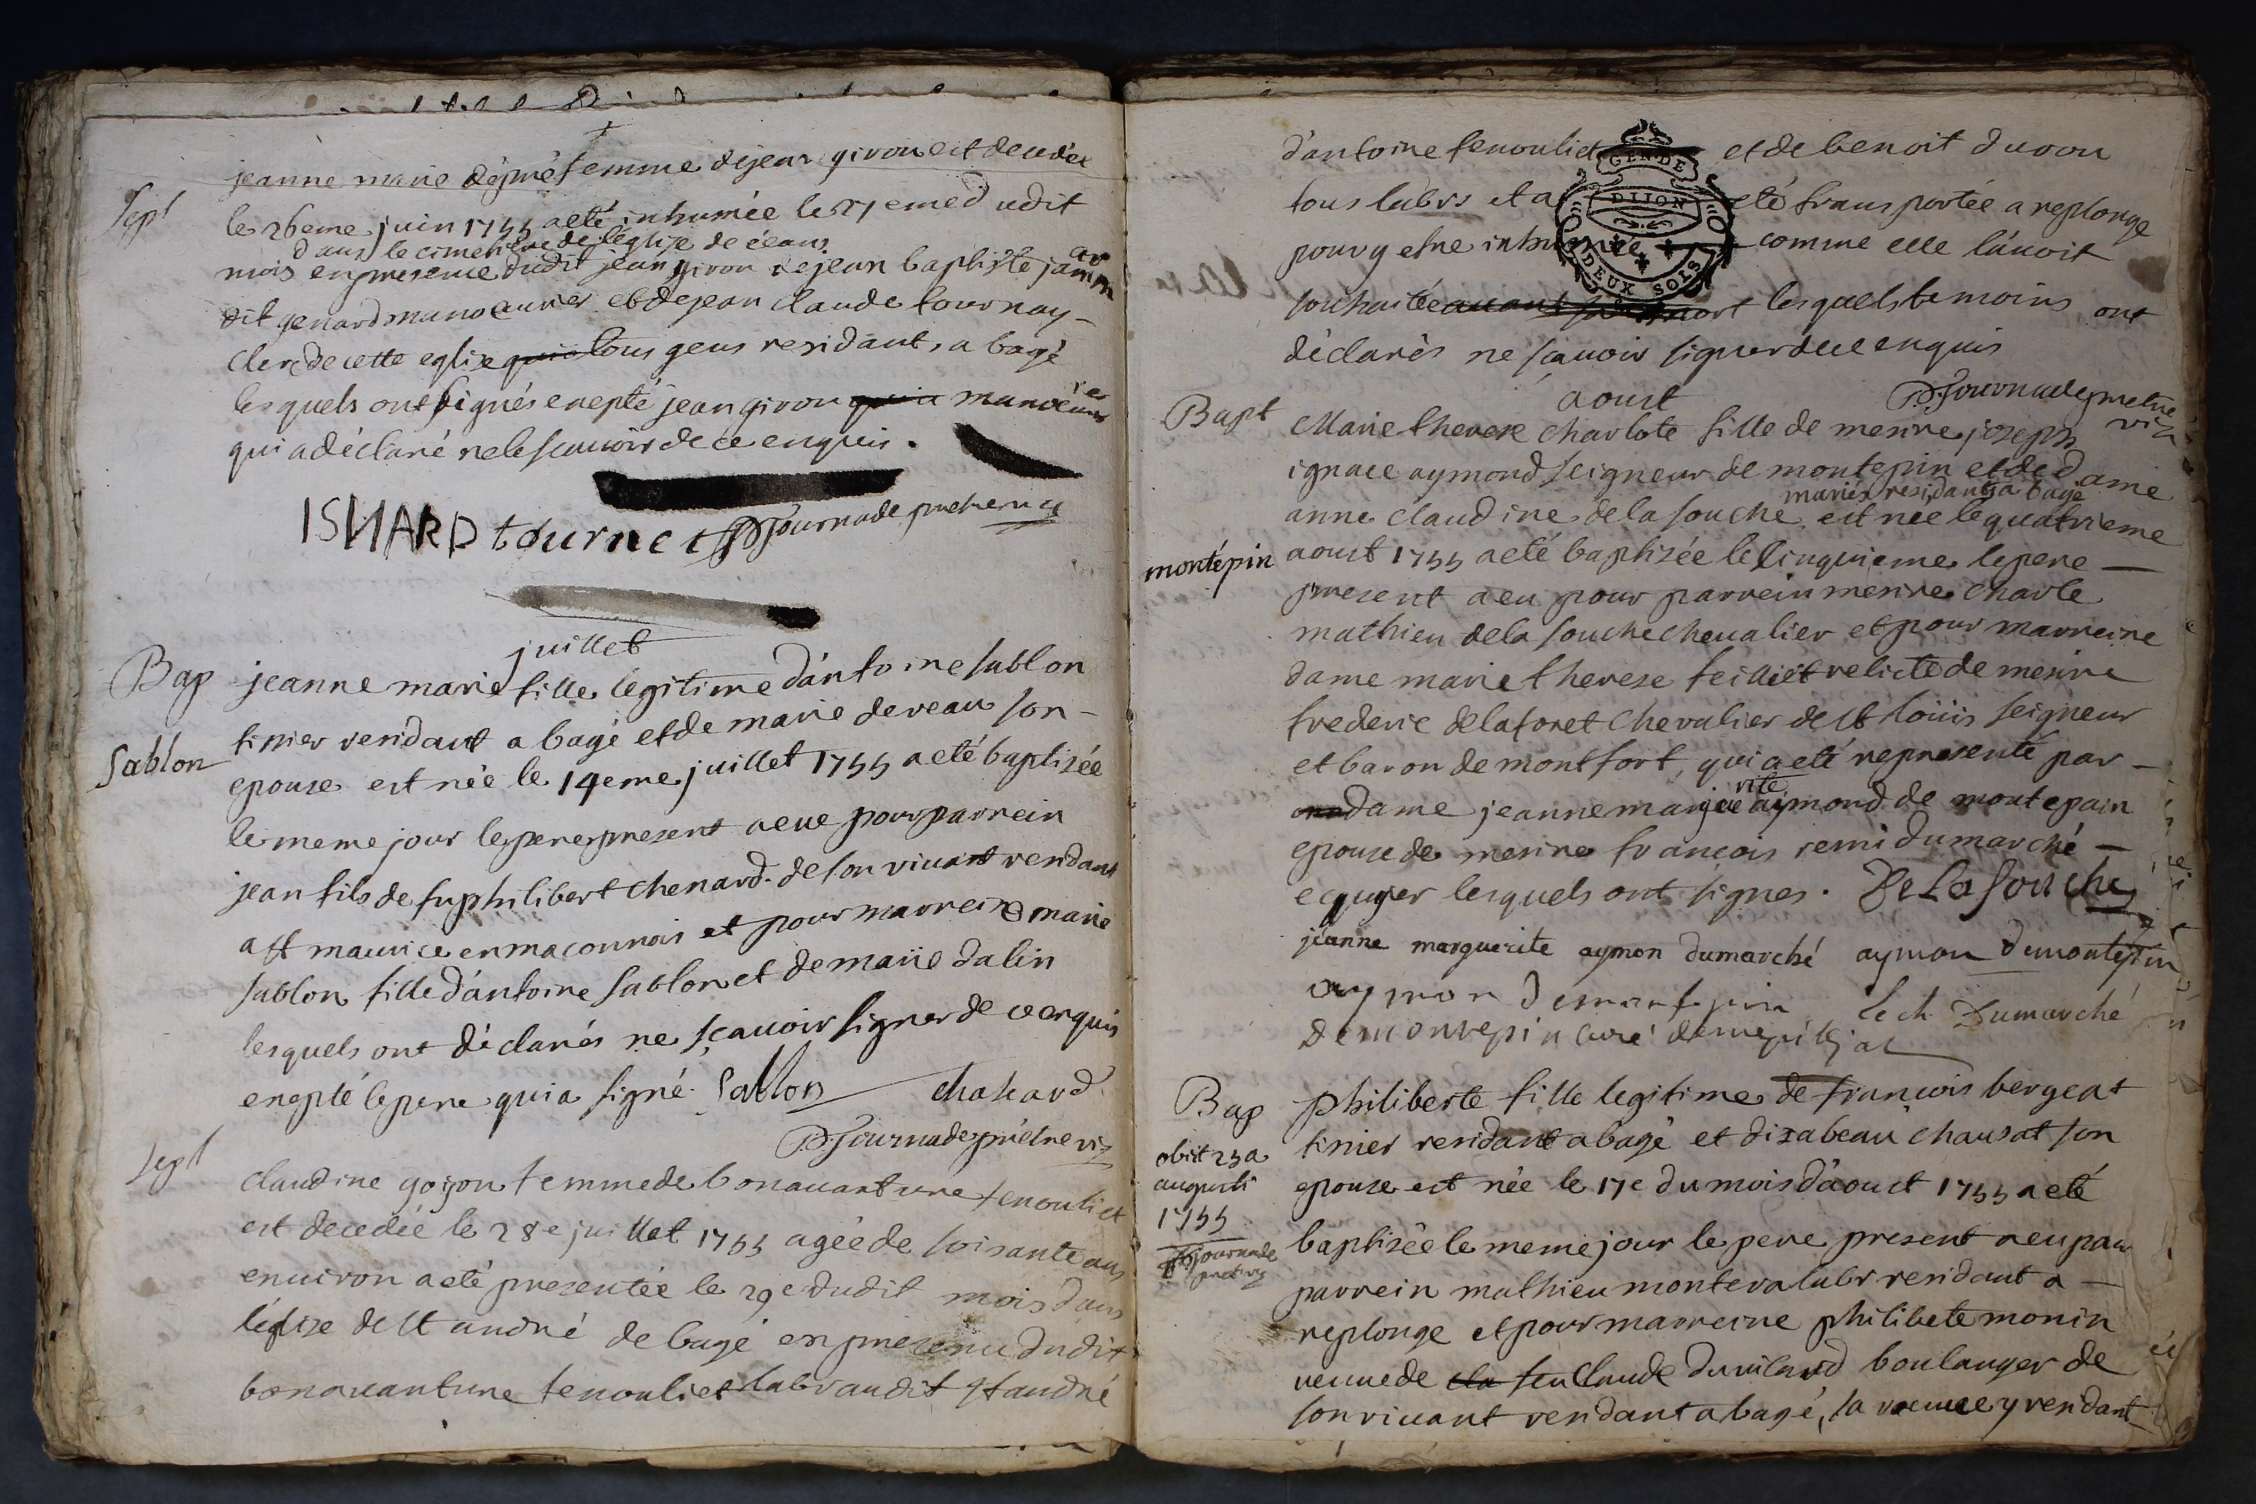 Sept
jeanne marie femme de jean givon est decedée
le 26eme juin 1755 a eté inhumée le 27eme dudit
dans le cimetiere de l'église de céans
mois en presence dudit jean givon de jean baptiste
dit genard manoeuvrier et de jean claude tournay
clerc de cette eglise tous gens residants a bagé
lesquels ont signés exepté jean givon manoeuvrier
qui a déclaré ne le scauoir de ce enquis.
ISNARD tournet D. Journade pretre vic
juillet
Bap
Sablon
jeanne marie fille légitime d'antoine sablon
tixier residant a bagé et de marie deveau son
epouse est née le 14eme juillet 1755 a eté baptisée
le meme jour le pere present a eue pour parrein
jean fils de fu philibert chenard de son vivant residant
a st maurice en maconnois et pour marreine marie
sablon fille d'antoine sablon et de marie dalin
lesquels ont déclarés ne sçauoir signer de ce enquis
exepté le pere qui a signé. Sablon chahard
D. Journade prêtre vic
Sept
claudine goyon femme de bonauanture tenouliet
est decedée le 28e juillet 1755 agée de soisante ans
enuiron a eté presentée le 29e dudit mois dans
léglise de st andré de bagé en presence dudit
bonauanture tenouliet labr audit st andré
d'antoine tenouliet et de benoit duvon
tous labrs et a eté transportée a replonge
pour y etre inhumée comme elle l'auoit
GEN DE
DIJON
DEUX SOLS
souhaitée auant sa mort lesquels temoins ont
déclarés ne sçauoir signer de ce enquis
D. Journade pretre vic
aoust
Bapt
montépin
Marie therese charlote fille de mesire joseph
ignace aymond seigneur de montepin et de dame
mariés residants a bagé
anne claudine de la souche est née le quatrieme
aoust 1755 a eté baptisée le cinquieme le pere
present a eu pour parrein mesire charle
mathieu de la souche cheualier et pour marreine
dame marie therese relicte de mesire
frederic de la foret chevalier de st loüis seigneur
et baron de montfort, qui a eté representé par
dame jeanne marguerite aymond de montepain
epouse de mesire francois remi dumarché
ecquyer lesquels ont signes. De La Souche
jeanne marguerite aymon dumarché aymon demontepin
aymon demontepin le ch Dumarché
Demontepin curé de
Bap
obiit 23a
augusti
1755
D. journade
pret vic
philiberte fille legitime de francois bergeat
tixier residant a bagé et d'izabeau chausat son
epouse est née le 17e du mois d'aoust 1755 a eté
baptisée le meme jour le pere present a eu pour
parrein mathieu montera labr residant a
replonge et pour marreine philibete monin
veuue de feu claude duvilard boulanger de
son viuant residant a bagé, sa veuue y residant